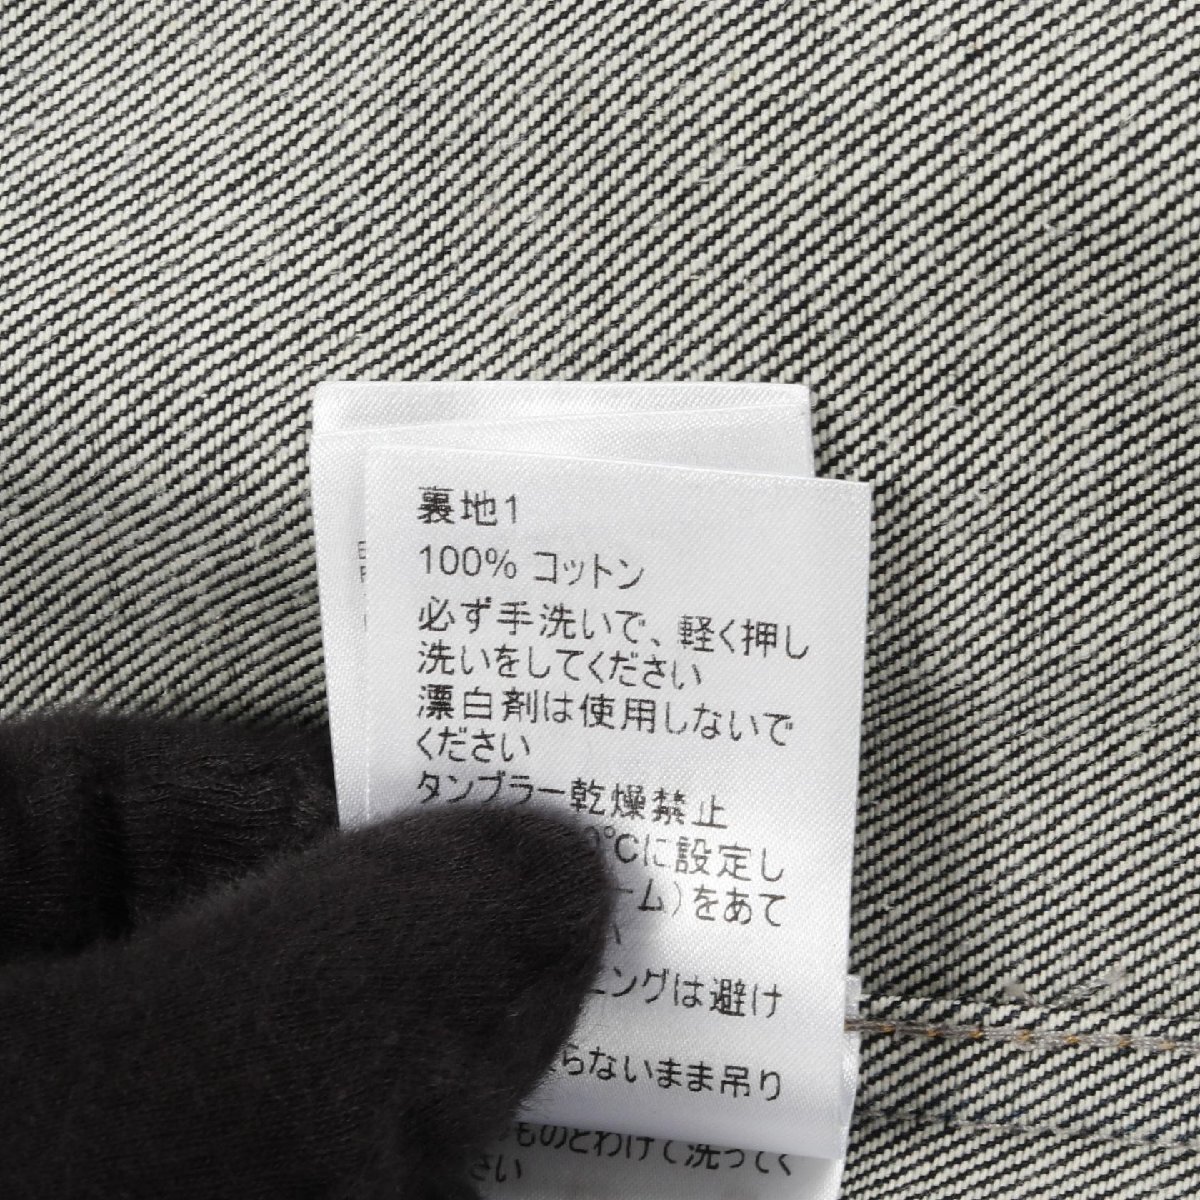 裏地1
100% コットン
必ず手洗いで、軽く押し
洗いをしてください
漂白剤は使用しないで
ください
タンブラー乾燥禁止
0℃に設定し
ーム)をあて
い
ニングは避け
らないまま吊り
ものとわけて洗ってく
さい